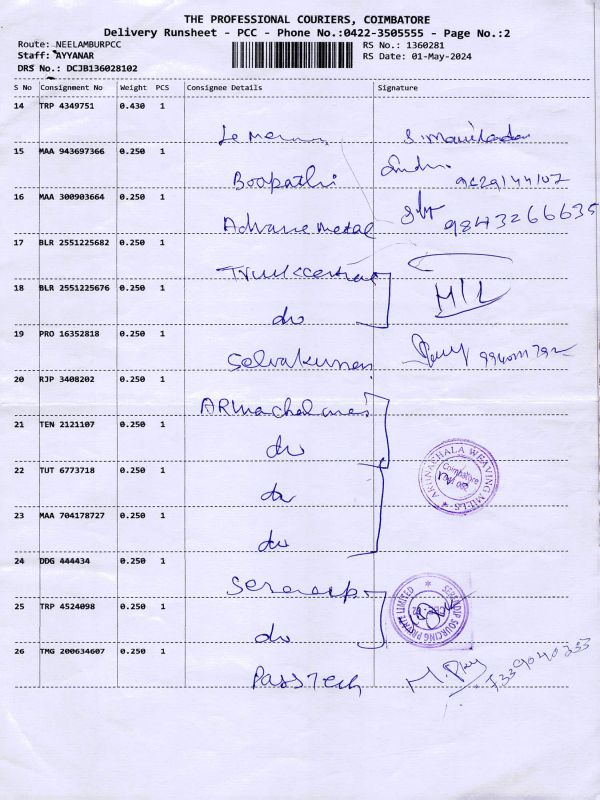 THE PROFESSIONAL COURIERS, COIMBATORE
Delivery Runsheet - PCC - Phone No.:0422-3505555 - Page No.:2
Route: NEELAMBURPCC
Staff: AYYANAR
DRS No.: DCJB136028102
RS No.: 1360281
RS Date: 01-May-2024
S No Consignment No Weight PCS Consignee Details Signature
14 TRP 4349751 0.430 1
15 MAA 943697366 0.250 1
Boopathi
16 MAA 300903664 0.250 1
Advance metal 9843266635
17 BLR 2551225682 0.250 1
18 BLR 2551225676 0.250 1
do
19 PRO 16352818 0.250 1
Selvakumar
20 RJP 3408202 0.250 1
21 TEN 2121107 0.250 1
do
22 TUT 6773718 0.250 1
do
ARUNACHALA WEAVING MILLS
Coimbatore
23 MAA 704178727 0.250 1
do
24 DDG 444434 0.250 1
25 TRP 4524098 0.250 1
do
SERENDIP SOURCING PRIVATE LIMITED
26 TMG 200634607 0.250 1
PassTech 7339040333